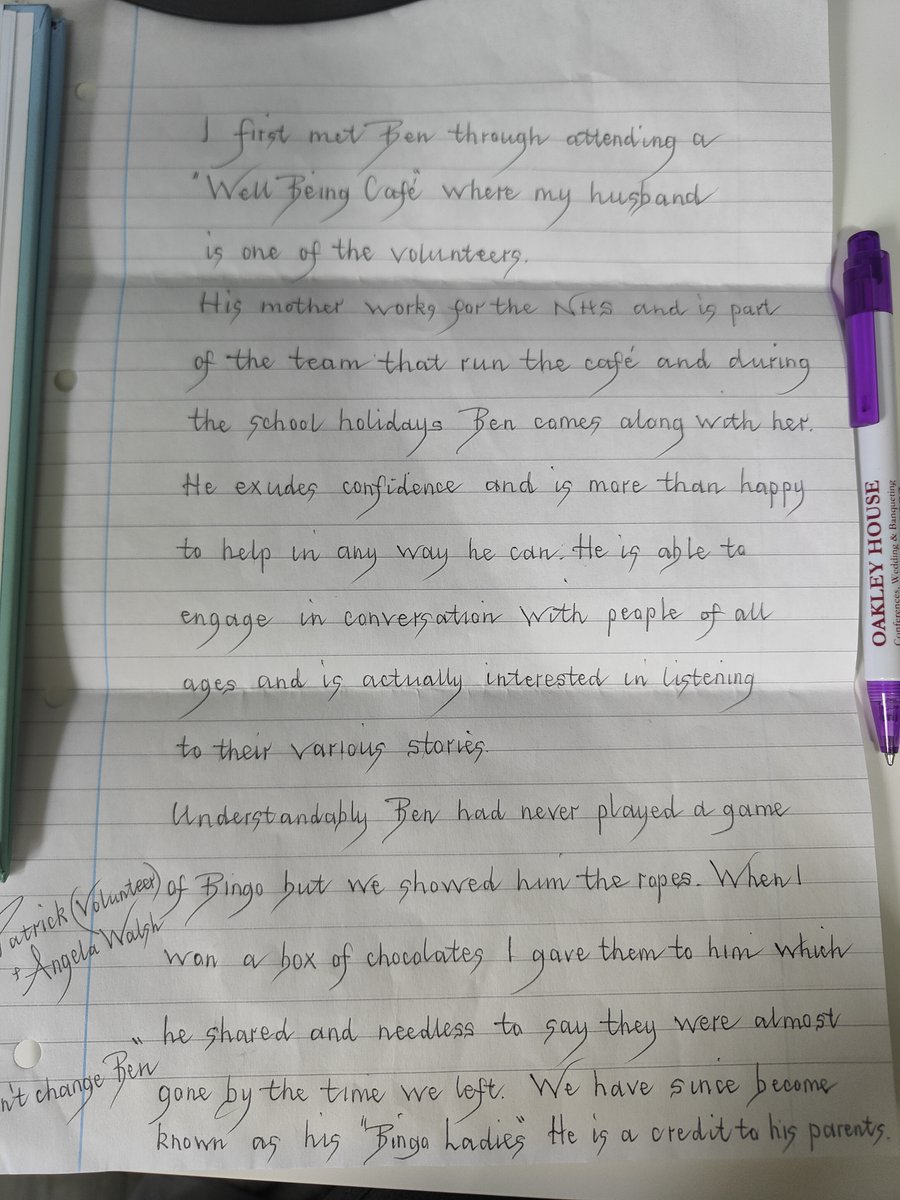 I first met Ben through attending a
"Well Being Café" where my husband
is one of the volunteers.
His mother works for the NHS and is part
of the team that run the café and during
the school holidays Ben comes along with her.
He exudes confidence and is more than happy
to help in any way he can. He is able to
engage in conversation with people of all
ages and is actually interested in listening
to their various stories.
Understandably Ben had never played a game
of Bingo but we showed him the ropes. When I
won a box of chocolates I gave them to him which
he shared and needless to say they were almost
gone by the time we left. We have since become
known as his "Bingo Ladies" He is a credit to his parents.
Patrick (Volunteer)
+ Angela Walsh
n't change Ben"
OAKLEY HOUSE
Conferences, Wedding & Banqueting